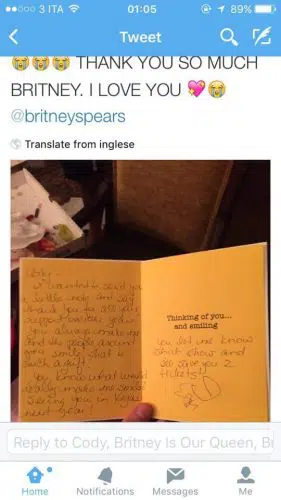 3 ITA
01:05
89%
Tweet
THANK YOU SO MUCH
BRITNEY. I LOVE YOU
@britneyspears
Translate from inglese
I wanted to send you
a little note and say
thank you for all your
support
You always make me
and the people around
you smile that is
such a gift!
You know what would
really make me smile
seeing you in Vegas
next year!
Thinking of you...
and smiling
You let me know
which show and
I'll give you 2
tickets!!
Reply to Cody, Britney Is Our Queen, Br
Home
Notifications
Messages
Me